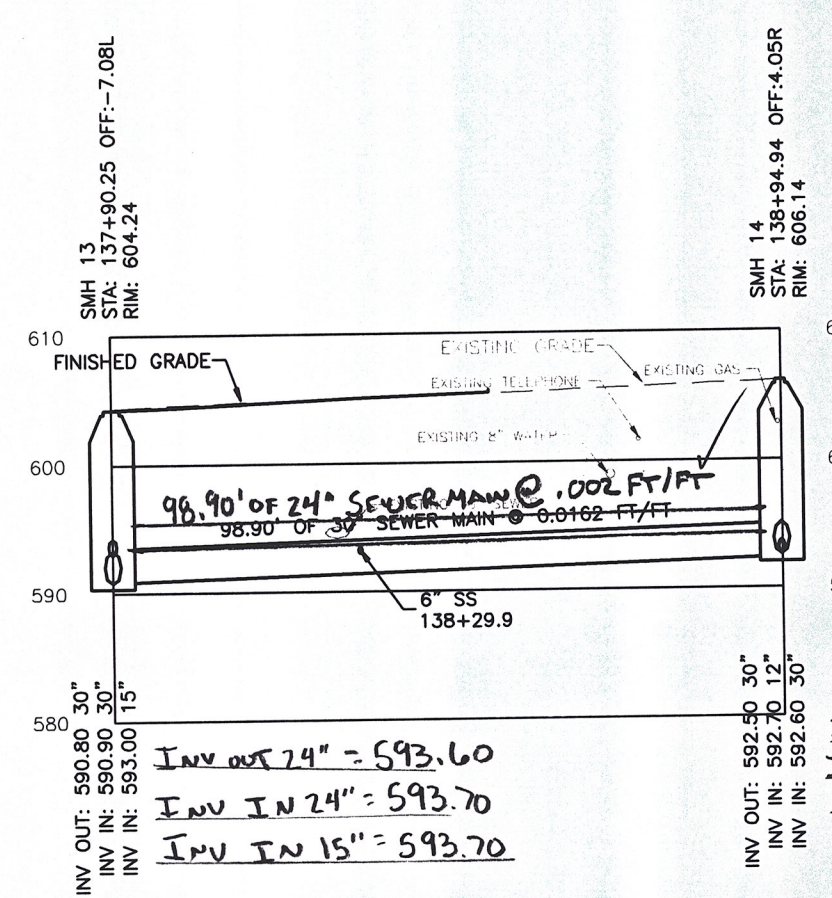 SMH 13
STA: 137+90.25 OFF:-7.08L
RIM: 604.24
SMH 14
STA: 138+94.94 OFF:4.05R
RIM: 606.14
610
FINISHED GRADE
EXISTING GRADE
EXISTING TELEPHONE
EXISTING GAS
EXISTING 8" WATER
600
98.90' OF 24" SEWER MAIN @ .002 FT/FT
98.90' OF 30" SEWER MAIN @ 0.0162 FT/FT
590
6" SS
138+29.9
580
INV OUT: 590.80 30"
INV IN: 590.90 30"
INV IN: 593.00 15"
INV OUT 24" = 593.60
INV IN 24" = 593.70
INV IN 15" = 593.70
INV OUT: 592.50 30"
INV IN: 592.70 12"
INV IN: 592.60 30"